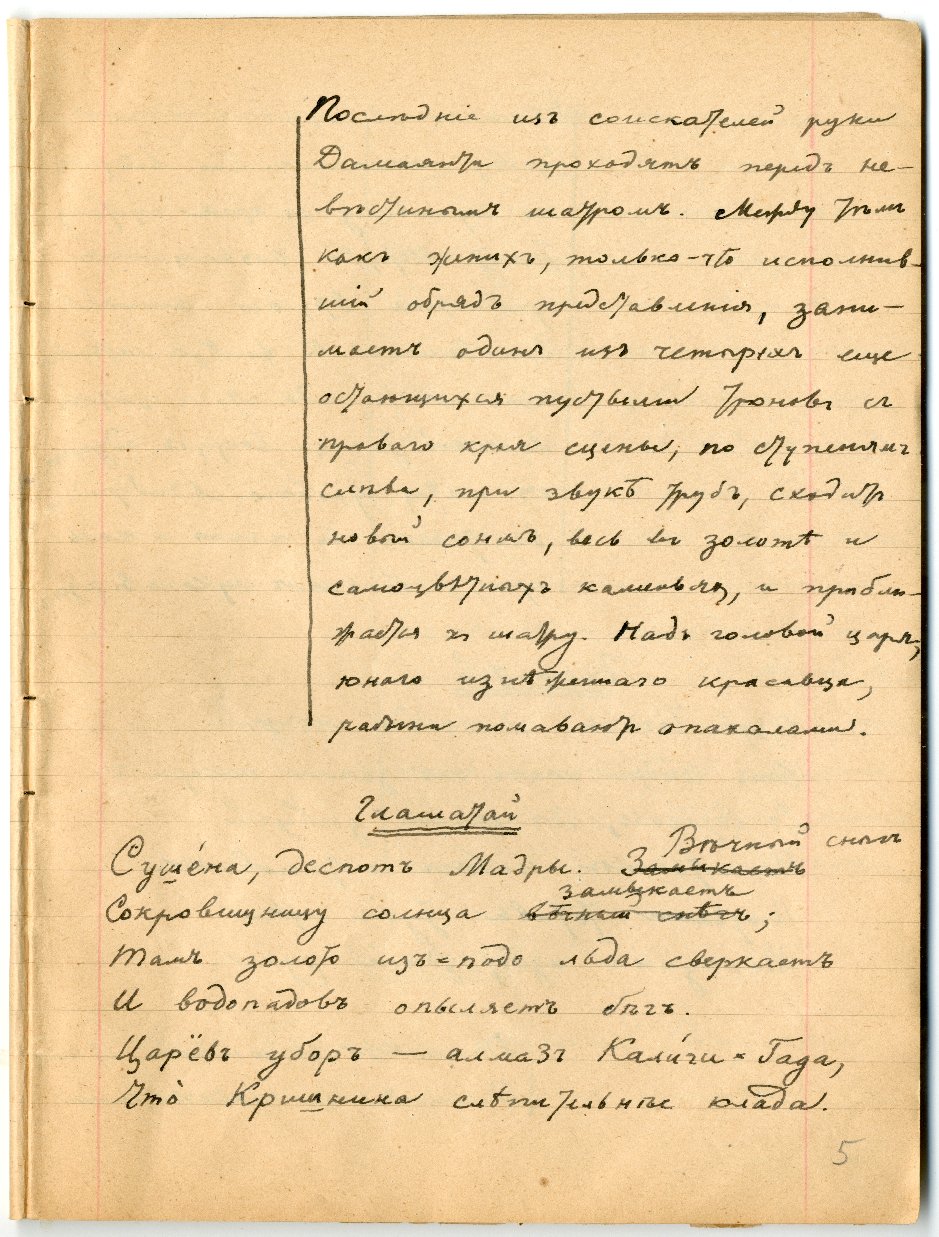 Послѣднiе изъ соискателей руки
Дамаянти проходятъ передъ не-
вѣстинымъ шатромъ. Между тѣмъ
какъ женихъ, только-что исполнив-
шiй обрядъ представленiя, зани-
маетъ одинъ изъ четырехъ еще
остающихся пустыми троновъ съ
праваго края сцены, по ступенямъ
слѣва, при звукѣ трубъ, сходитъ
новый сонмъ, весь въ золотѣ и
самоцвѣтныхъ каменьяхъ, и прибли-
жается къ шатру. Надъ головой царя,
юнаго изнѣженнаго красавца,
рабыни помаваютъ опахалами.
Глашатай
Вѣчный снѣгъ
Сушéна, деспотъ Мадры. Замыкаетъ
замыкаетъ
Сокровищницу солнца вѣчный снѣгъ;
Тамъ золото изъ=подо льда сверкаетъ
И водопадовъ опыляетъ бѣгъ.
Царёвъ уборъ — алмазъ Кали́ги=Гада,
Что̀ Кришнина слѣпительнѣе клада.
5